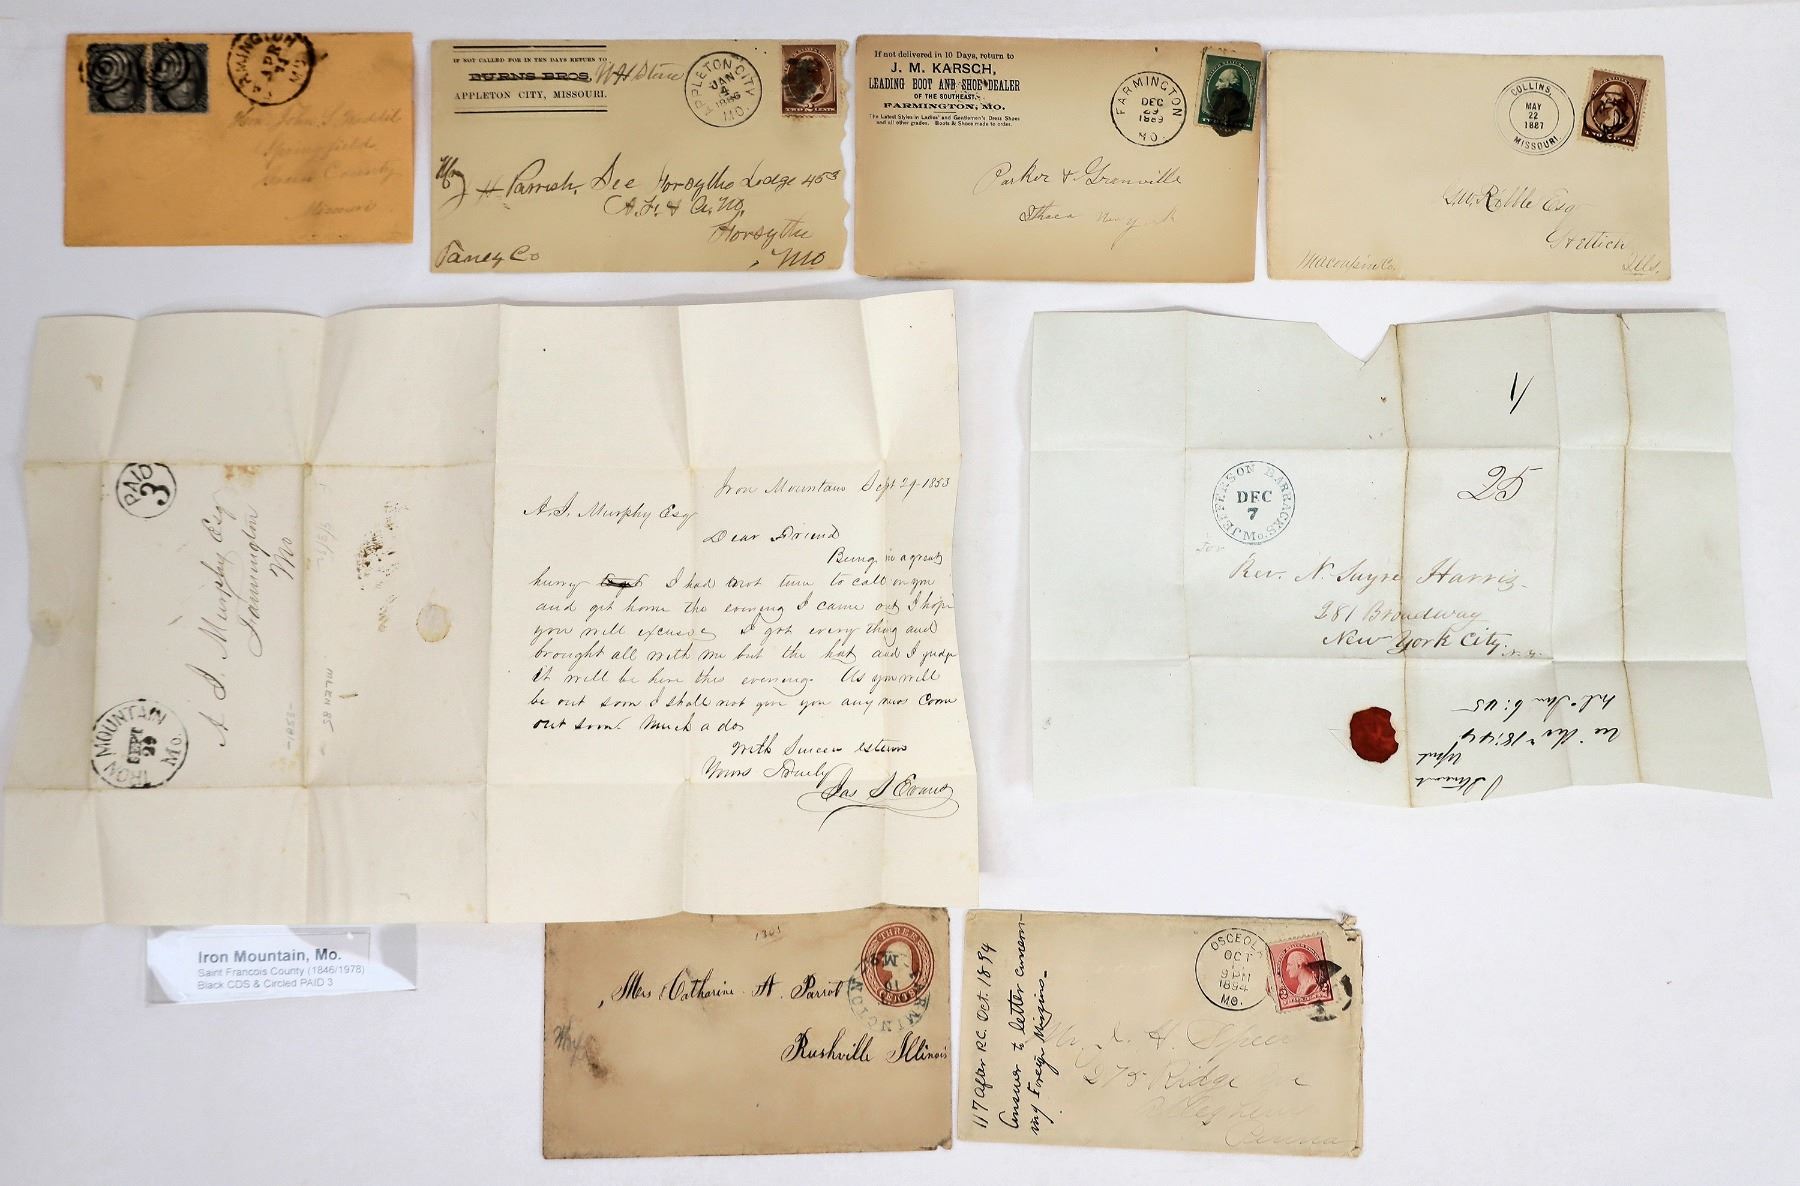 FARMINGTON
APR
21
MO.
Hon. John S.
Springfield
Green County
Missouri
IF NOT CALLED FOR IN TEN DAYS RETURN TO
BURNS BROS,
APPLETON CITY, MISSOURI.
APPLETON CITY
JAN
4
1886
MO.
TWO CENTS
H Parrish, Sec Forsythe Lodge 453
A. F. & A. M.
Forsythe
Taney Co
Mo
If not delivered in 10 Days, return to
J. M. KARSCH,
LEADING BOOT AND SHOE DEALER
OF THE SOUTHEAST,
FARMINGTON, MO.
The Latest Styles in Ladies' and Gentlemen's Dress Shoes
and all other grades. Boots & Shoes made to order.
FARMINGTON
DEC
29
1889
MO.
Parker & Granville
Ithaca New York
COLLINS,
MAY
22
1887
MISSOURI.
Esq
Macoupin Co.
Ills.
PAID
3
A J Murphy Esq
Farmington
Mo
IRON MOUNTAIN
SEPT
29
Mo.
Iron Mountain Sept 29 1853
A. J. Murphy Esq
Dear Friend
Being in a great
hurry I had not time to call on you
and get home the evening I came out I hope
you will excuse I got every thing and
brought all with me but the hat and I judge
it will be here this evening. As you will
be out soon I shall not give you any news Come
out soon. Much a do
With Sincere esteem
Yours Truly
Jas S Evans
25
JEFFERSON BARRACKS
DEC
7
Mo.
For
Rev. N. Sayre Harris
281 Broadway
New York City. N.Y.
Iron Mountain, Mo.
Saint Francois County (1846/1978)
Black CDS & Circled PAID 3
1301
THREE
CENTS
FARMINGTON
10
Mo
Mrs Catharine A. Parrot
Rushville Illinois
117 After R.C. Oct. 1894
Answer to letter concern-
ing Foreign Missions-
OSCEOLA
OCT
9 PM
1894
MO.
Mr. H. Speer
275 Ridge Ave
Allegheny
Penna